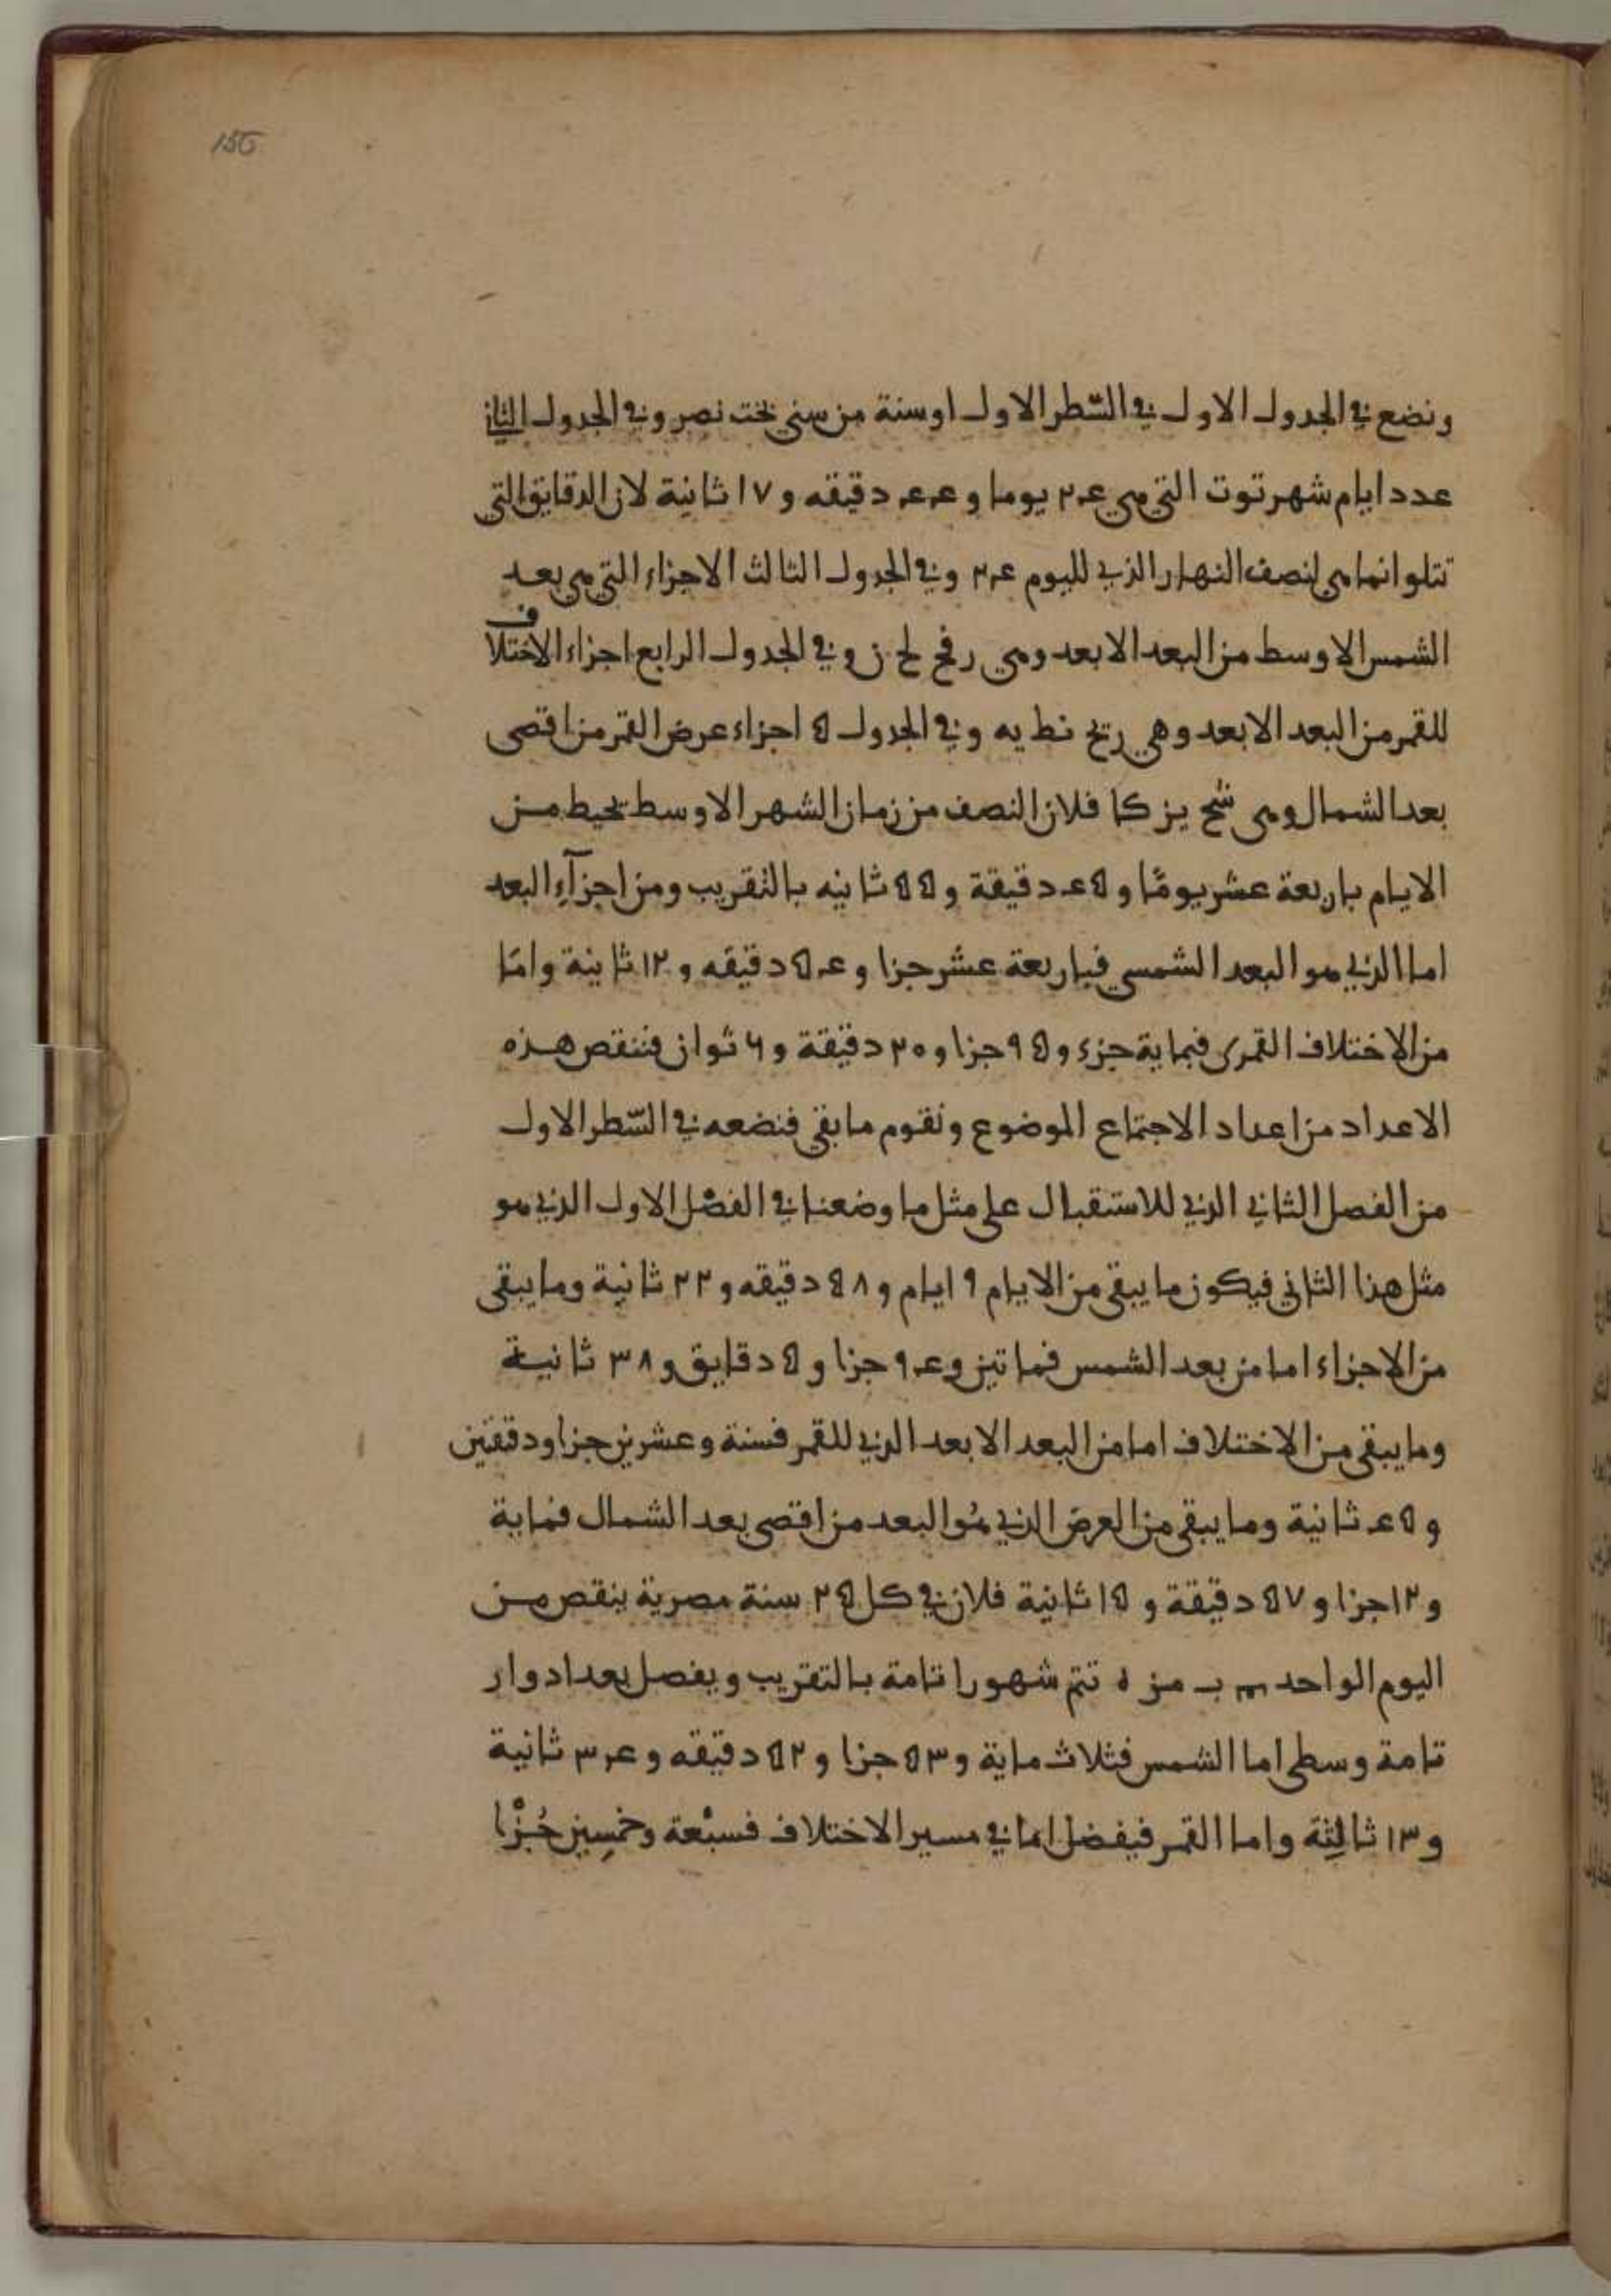 156
ونضع في الجدول الاول في السّطر الاول اوسنة من سني بخت نصر وفي الجدول الثاني
عدد ايام شهر توت التي هي ٢٤ يوما و ٤٤ دقيقه و ١٧ ثانية لان الدقايق التي
تتلو انما هي لنصف النهار الذي لليوم ٢٤ وفي الجدول الثالث الاجزاء التي هي بعد
الشمس الاوسط من البعد الابعد وهي رفح لح ز وفي الجدول الرابع اجزاء الاختلاف
للقمر من البعد الابعد وهي ريح نط يه وفي الجدول ٥ اجزاء عرض القمر من اقصى
بعد الشمال وهي شح يز كا فلان النصف من زمان الشهر الاوسط يحيط من
الايام باربعة عشر يومًا و ٤٥ دقيقة و ٥٥ ثانيه بالتقريب ومن اجزآءِ البعد
اما الذي هو البعد الشمسي فباربعة عشر جزا و ٥٤ دقيقه و ١٢ ثانية وامّا
من الاختلاف القمرى فبماية جزء و ٩٥ جزا و ٢٠ دقيقة و ٦ ثوان فننقص هذه
الاعداد من اعداد الاجتماع الموضوع ونقوم ما بقي فنضعه في السّطر الاول
من الفصل الثاني الذي للاستقبال على مثل ما وضعنا في الفصْل الاول الذي هو
مثل هذا الثاني فيكون ما يبقى من الايام ٩ ايام و ٥٨ دقيقه و ٢٢ ثانية وما يبقى
من الاجزاء اما من بعد الشمس فماتين و ٩٤ جزا و ٥ دقايق و ٣٨ ثانية
وما يبقى من الاختلاف اما من البعد الابعد الذي للقمر فستة وعشرين جزا ودقتين
و ٤٥ ثانية وما يبقى من العرض الذي هُو البعد من اقصى بعد الشمال فماية
و ١٢ جزا و ٥٧ دقيقة و ١٥ ثانية فلان في كل ٢٥ سنة مصرية ينقص من
اليوم الواحد ب مز ه تتم شهورا تامة بالتقريب ويفصل بعد ادوار
تامة وسطى اما الشمس فثلاث ماية و ٥٣ جزا و ٥٢ دقيقه و ٣٤ ثانية
و ١٣ ثالِثِة واما القمر فيفضل اما في مسير الاختلاف فسبْعة وخمسِين جُزْا